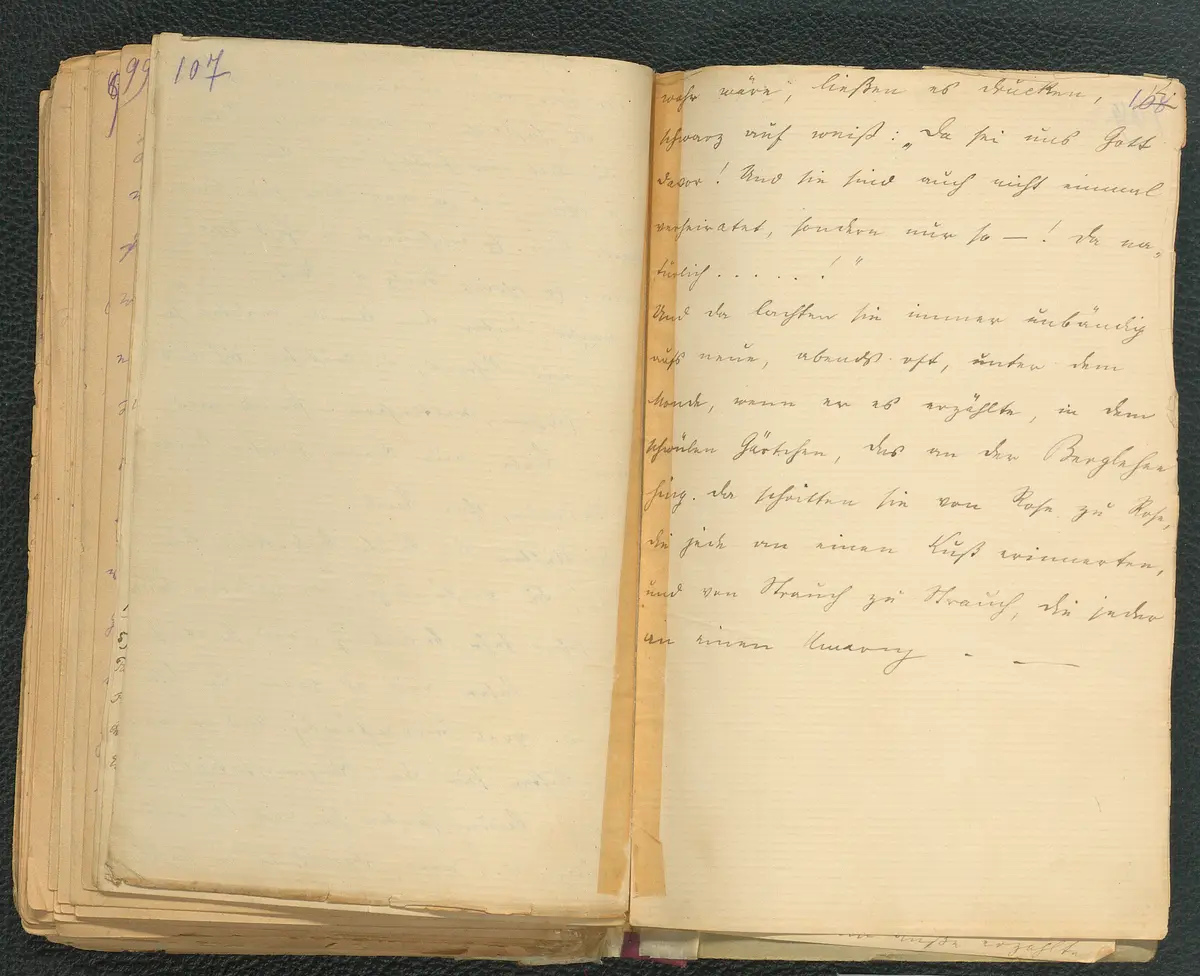 99
107
108
wahr wäre, ließen es drucken,
schwarz auf weiß: „Da sei uns Gott
davor! Und sie sind auch nicht einmal
verheiratet, sondern nur so — ! Da na-
türlich . . . . . . !"
Und da lachten sie immer unbändig
aufs neue, abends oft, unter dem
Monde, wenn er es erzählte, in dem
schwülen Gärtchen, das an der Berglehne
hing. Da schritten sie von Rose zu Rose,
die jede an einen Kuß erinnerten,
und von Strauch zu Strauch, die jeder
an einen
erzählt